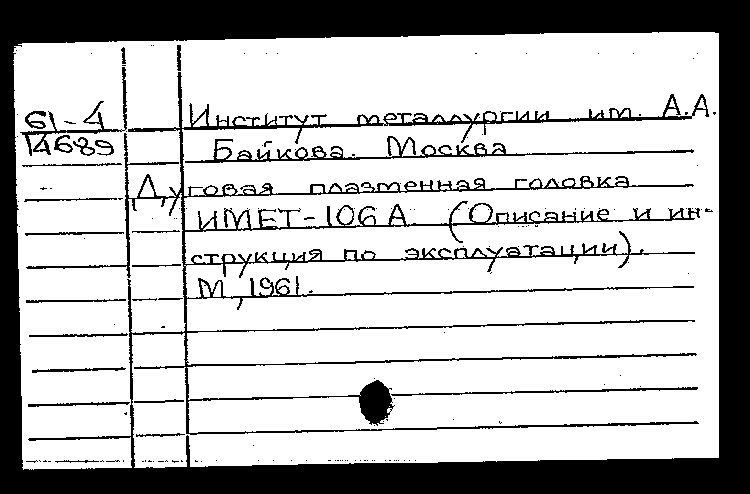 61-4 Институт металлургии им. А.А.
14689 Байкова. Москва
Дуговая плазменная головка
ИМЕТ-106А (Описание и ин-
струкция по эксплуатации).
М, 1961.